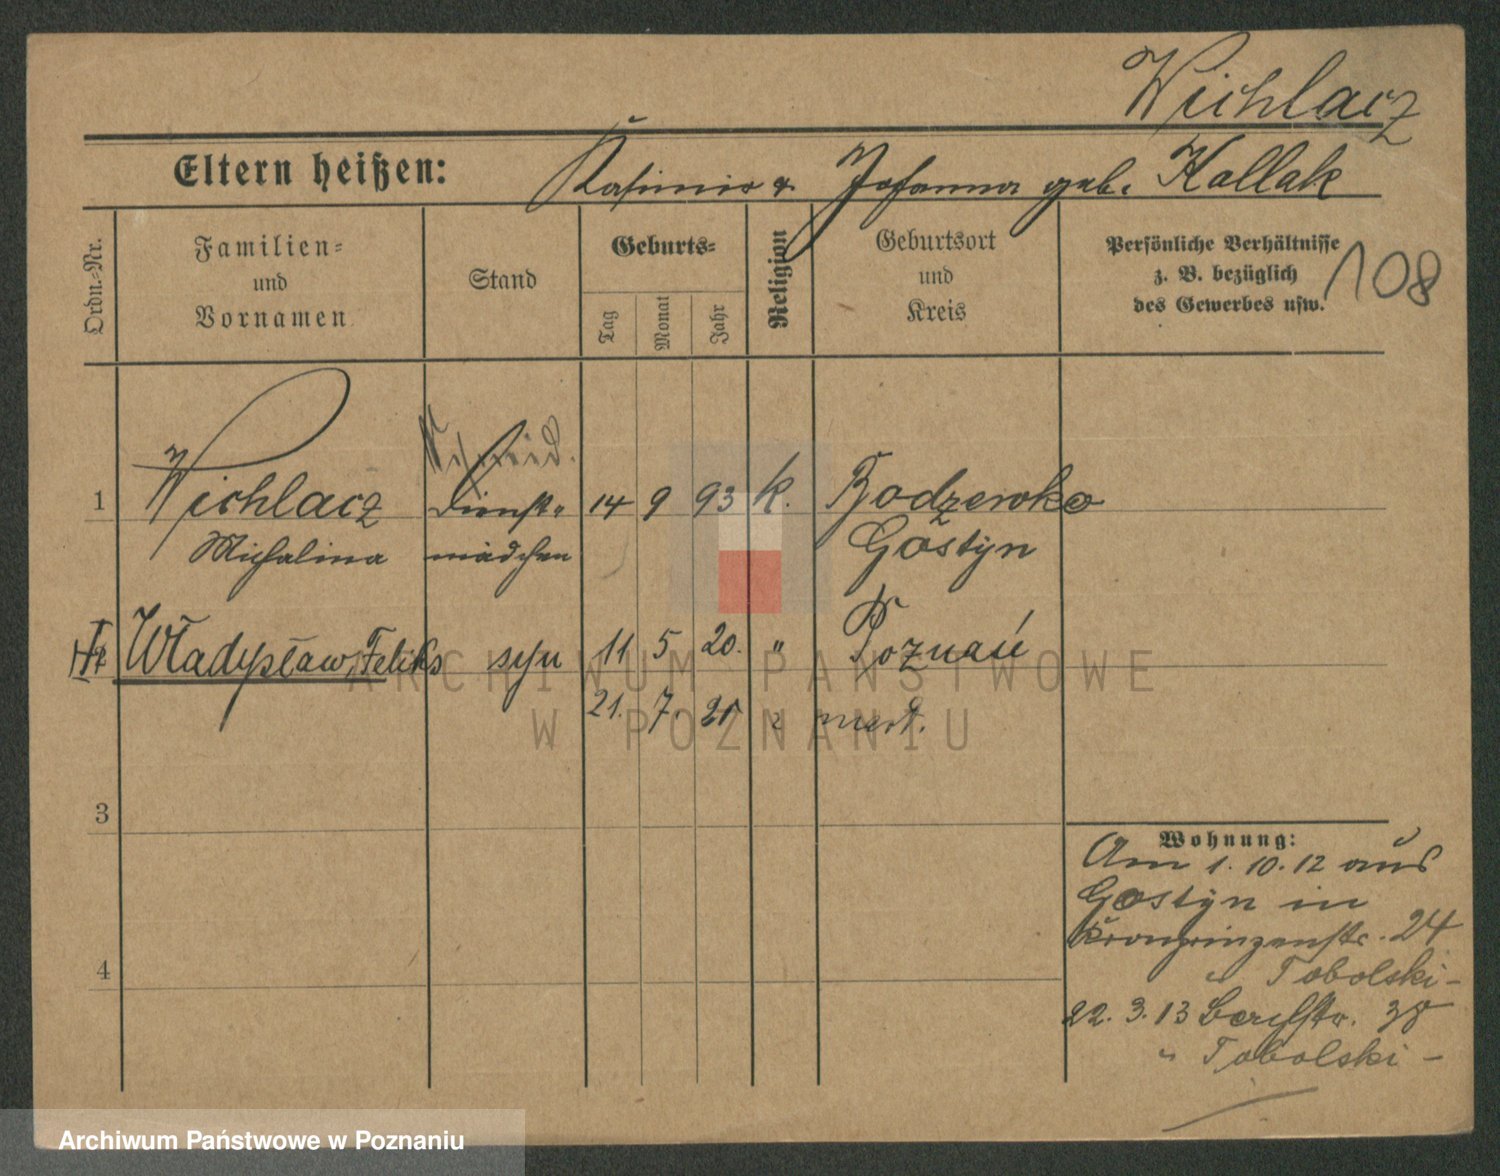 Wichlacz
Eltern heißen: Kasimir & Johanna geb. Kallak
Ordn.=Nr.
Familien=
und
Vornamen
Stand
Geburts=
Tag
Monat
Jahr
Religion
Geburtsort
und
Kreis
Persönliche Verhältnisse
z. B. bezüglich
des Gewerbes usw.
108
1 Wichlacz Dienst= 14 9 93 k. Bodzewko
Michalina mädchen Gostyn
Władysław, Feliks syn 11 5 20. " Poznań
21. 7. 21
3
4
Wohnung:
Am 1. 10. 12 aus
Gostyn in
Kronprinzenstr. 24
" Tobolski -
22. 3. 13 38
" Tobolski -
ARCHIWUM PAŃSTWOWE
W POZNANIU
Archiwum Państwowe w Poznaniu